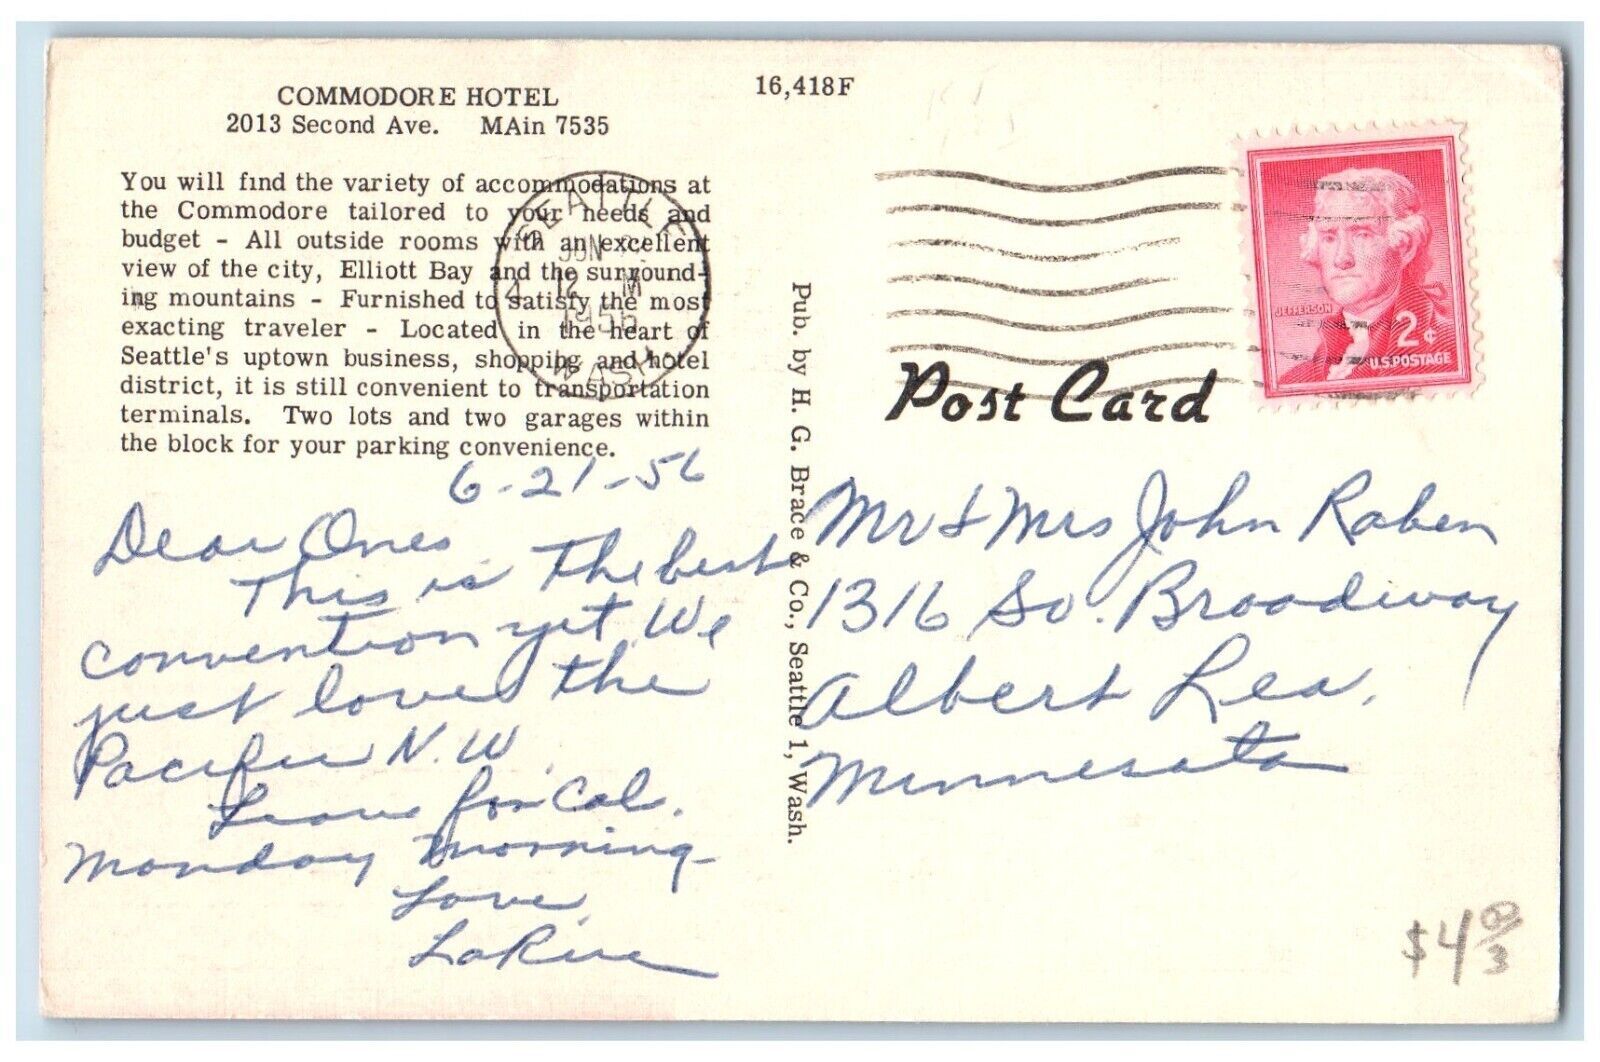 COMMODORE HOTEL
2013 Second Ave. MAin 7535
You will find the variety of accommodations at
the Commodore tailored to your needs and
budget - All outside rooms with an excellent
view of the city, Elliott Bay and the surround-
ing mountains - Furnished to satisfy the most
exacting traveler - Located in the heart of
Seattle's uptown business, shopping and hotel
district, it is still convenient to transportation
terminals. Two lots and two garages within
the block for your parking convenience.
6-21-56
Dear Ones
This is the best
convention yet We
just love the
Pacific N.W.
Leave for Cal.
Monday morning
Love,
16,418F
Pub. by H. G. Brace & Co., Seattle 1, Wash.
SEATTLE
JUN
12 M
1956
WASH.
JEFFERSON
2¢
U.S. POSTAGE
Post Card
Mr & Mrs John Raben
1316 So. Broadway
Albert Lea,
Minnesota